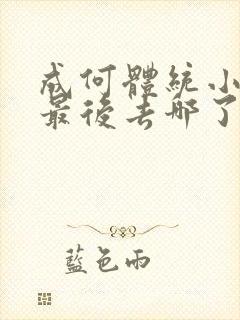 成何體統小
最後去哪了
藍色雨